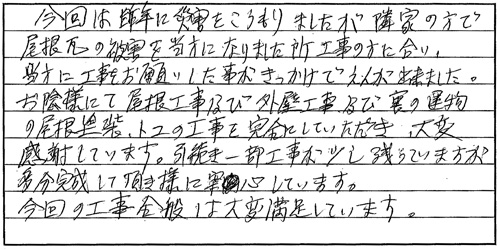 今回は昨年に災害をこうむりましたが隣家の方で
屋根瓦の被害で当方になりました所工事の方に会い、
当方に工事をお願いした事がきっかけでえんが出来ました。
お陰様にて屋根工事及び外壁工事及び裏の建物
の屋根塗装、トユの工事を完全にしていただき、大変
感謝しています。引続き一部工事が少し残っていますが
多分完成して頂き様に安心しています。
今回の工事全般は大変満足しています。